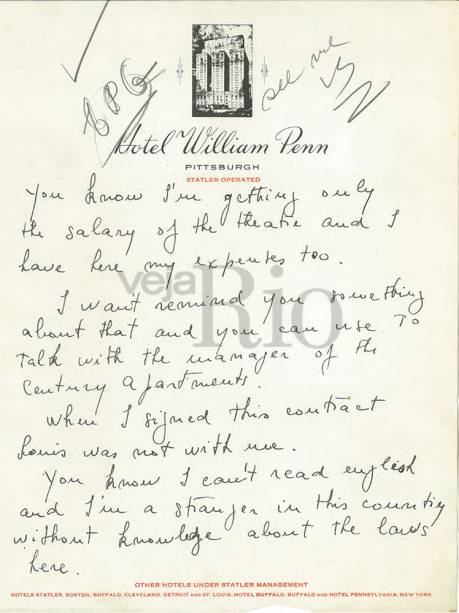 see me
Hotel William Penn
PITTSBURGH
STATLER OPERATED
You know I'm gething only
the salary of the theatre and I
have here my expenses too.
veja Rio
I want remind you something
about that and you can use to
talk with the manager of the
Century apartments.
When I signed this contract
Louis was not with me.
You know I can't read english
and I'm a stranger in this country
without knowledge about the laws
here.
OTHER HOTELS UNDER STATLER MANAGEMENT
HOTELS STATLER, BOSTON, BUFFALO, CLEVELAND, DETROIT AND ST. LOUIS. HOTEL BUFFALO, BUFFALO AND HOTEL PENNSYLVANIA, NEW YORK